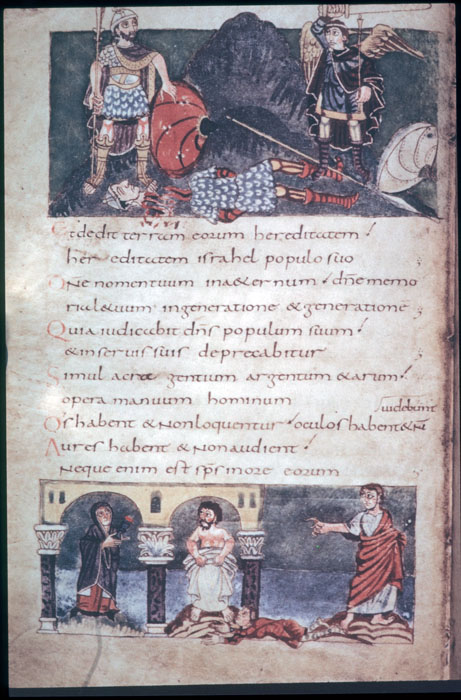 Et dedit terram eorum hereditatem
hereditatem israhel populo suo
Dñe nomen tuum in aeternum dñe memo
riale tuum in generatione & generatione
Quia iudicabit dñs populum suum
& in servis suis deprecabitur
Simulacra gentium argentum & aurum
opera manuum hominum
Os habent & non loquentur oculos habent & ñ
videbunt
Aures habent & non audient
Neque enim est sps in ore eorum